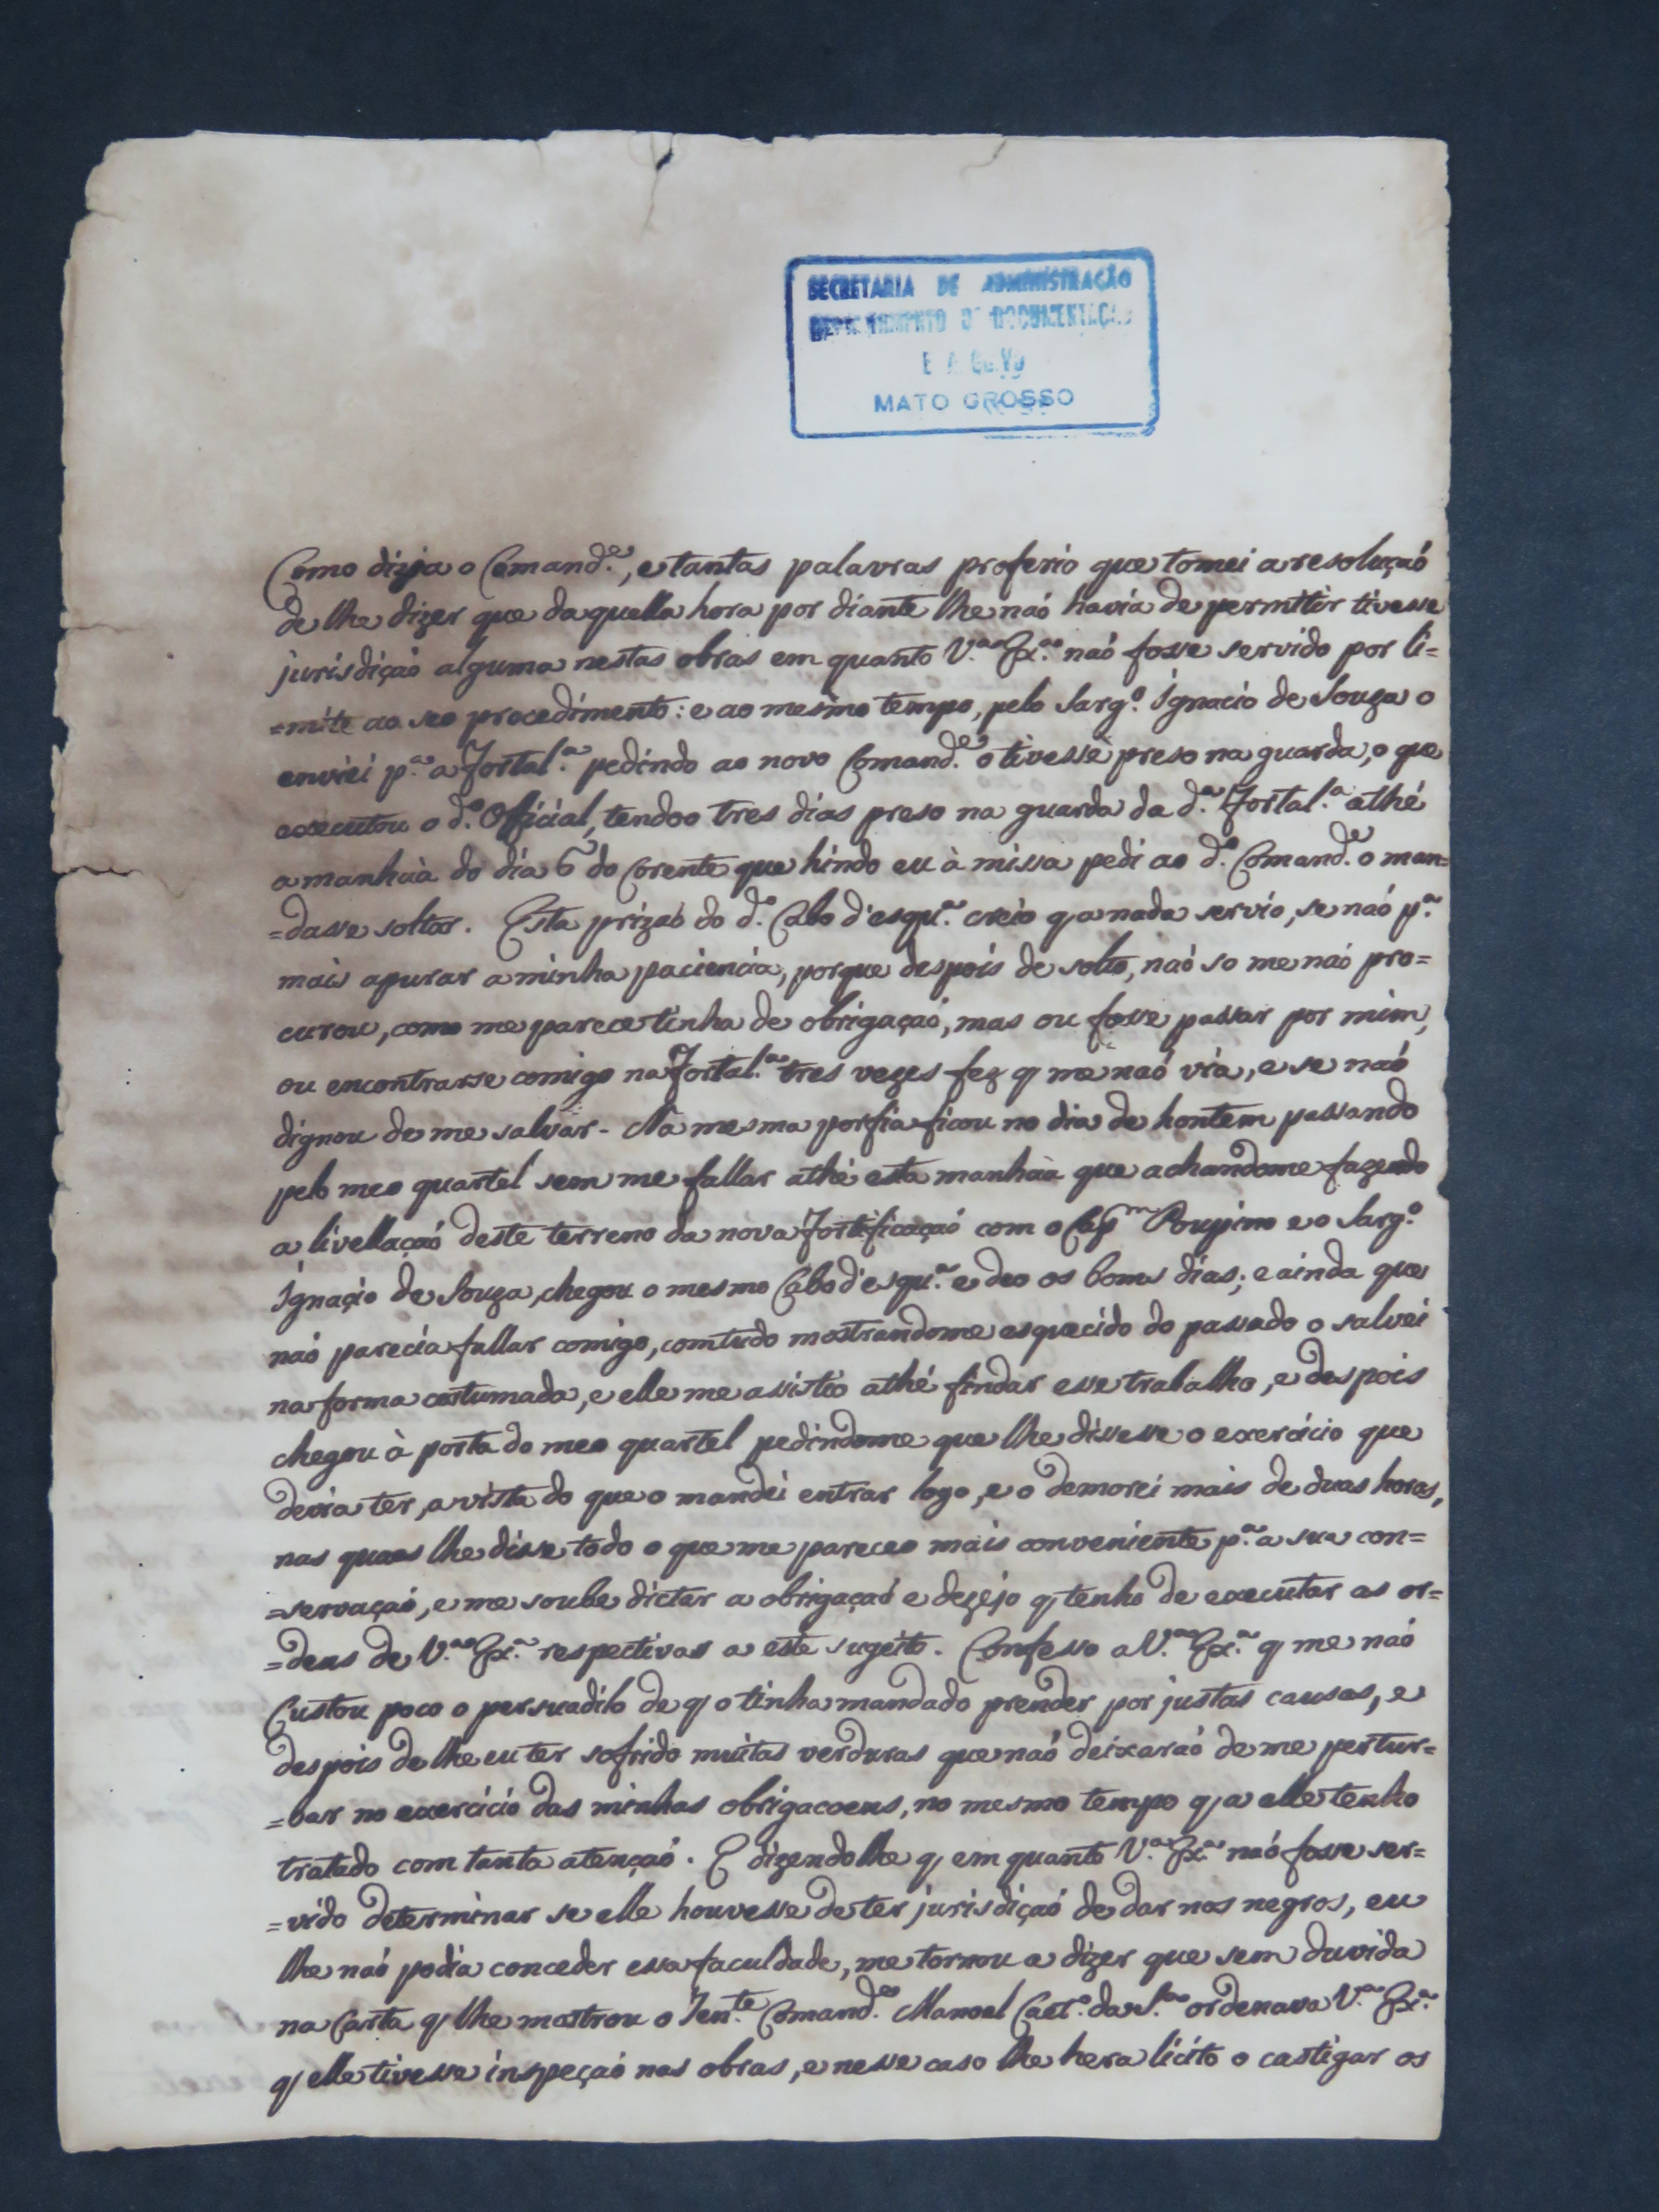 SECRETARIA DE ADMINISTRAÇÃO
DEPARTAMENTO DE DOCUMENTAÇÃO
E ARQUIVO
MATO GROSSO
Como dizia o Comand.e, e tantas palavras proferio que tomei a resoluçaõ
de lhe dizer que daquella hora por diante lhe naõ havia de permitir tivesse
jurisdiçaõ alguma nestas obras em quanto V.a Ex.a naõ fosse servido por li=
=mite ao seo procedimento: e ao mesmo tempo, pelo Sarg.o Ignacio de Souza o
enviei p.a a Fortal.a pedindo ao novo Comand.e o tivesse preso na guarda, o que
executou o d.o Oficial, tendoo tres dias preso na guarda da d.a Fortal.a athé
a manhaà do dia 6 do Corente que hindo eu à missa pedi ao d.o Comand.e o man=
=dasse soltar. Esta prizaõ do d.o Cabo d'esqu.a creio q a nada servio, se naõ p.a
mais apurar a minha paciencia, porque despois de solto, naõ so me naõ pro=
curou, como me parece tinha de obrigaçaõ, mas ou fosse passar por mim,
ou encontrarse comigo na Fortal.a tres vezes fez q me naõ via, e se naõ
dignou de me salvar. Na mesma porfia ficou no dia de hontem passando
pelo meo quartel sem me fallar athé esta manhaà que achandome fazendo
a livellaçaõ deste terreno da nova Fortificaçaõ com o Cap.m Poupino e o Sarg.o
Ignaçio de Souza, chegou o mesmo Cabo d'esqu.a e deo os bons dias; e ainda que
naõ parecia fallar comigo, comtudo mostrandome esquecido do passado o salvei
na forma costumada, e elle me assistio athé findar esse trabalho, e despois
chegou à porta do meo quartel pedindome que lhe dissesse o exercicio que
devia ter, a vista do que o mandei entrar logo, e o demorei mais de duas horas,
nas quaes lhe disse todo o que me pareceo mais conveniente p.a a sua con=
=servaçaõ, e me soube dictar a obrigaçaõ e dezejo q tenho de executar as or=
=dens de V.a Ex.a respectivas a este sugeito. Confesso a V.a Ex.a q me naõ
Custou poco o persuadilo de q o tinha mandado prender por justas causas, e
despois de lhe eu ter sofrido muitas verduras que naõ deixaraõ de me pertur=
=bar no exercicio das minhas obrigacoens, no mesmo tempo q a elle tenho
tratado com tanta atençaõ. E dizendolhe q em quanto V.a Ex.a naõ fosse ser=
=vido determinar se elle houvesse de ter jurisdiçaõ de dar nos negros, eu
lhe naõ podia conceder essa faculdade, me tornou a dizer que sem duvida
na Carta q lhe mostrou o Ten.te Comand.e Manoel Caet.o da S.a ordenava V.a Ex.a
q elle tivesse inspeçaõ nas obras, e nesse caso lhe hera licito o castigar os